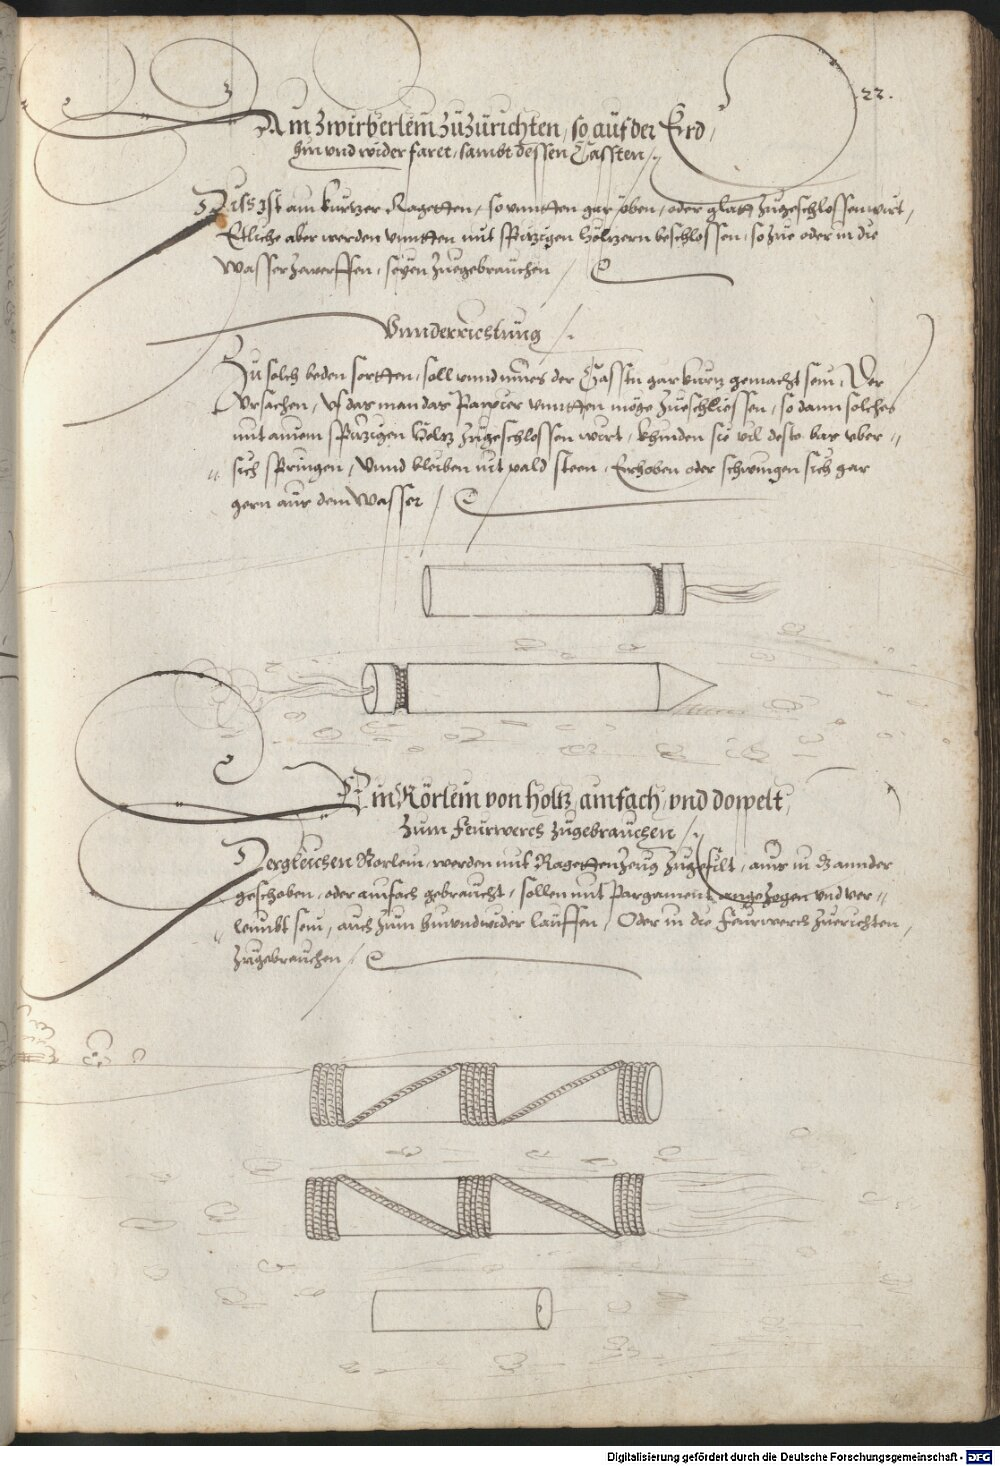 22.
Ain zwirberlein zuzurichten, so auf der Erd,
hin und wider faret, sambt dessen Cassten
Diss ist ain kurtzer Ragetten, so unntten gar oben, oder glatt zugeschlossen wirt,
Etliche aber werden unntten mit spitzigen höltzern beschlossen, so Jue oder in die
Wasser zewerffen, seyen zuegebrauchen
Unnderrichtung
Zu solch beden sortten, soll innd... der Casstn gar kurtz gemacht sein, Der
Ursachen, uf das man das Papier unntten möge zueschliessen, so dann solches
mit ainem spitzigen Holtz zugeschlossen wirt, khinden sie vil dester bas uber=
sich springen, Unnd bleiben nit pald steen, Erhoben oder schwingen sich gar
gern aus dem Wasser
Ein Rörlein von holtz ainfach, und dopelt,
Zum Feurwerch zugebrauchen
Dergleichen Rörlein, werden mit Ragetten Zeug zugefilt, ains in das annder
geschoben, oder ainfach gebraucht, sollen mit Pargament angezogen und ver=
leimbt sein, auch zum hin und wider lauffen, Oder in die Feurwerch zuerichten,
zugebrauchen
Digitalisierung gefördert durch die Deutsche Forschungsgemeinschaft - DFG